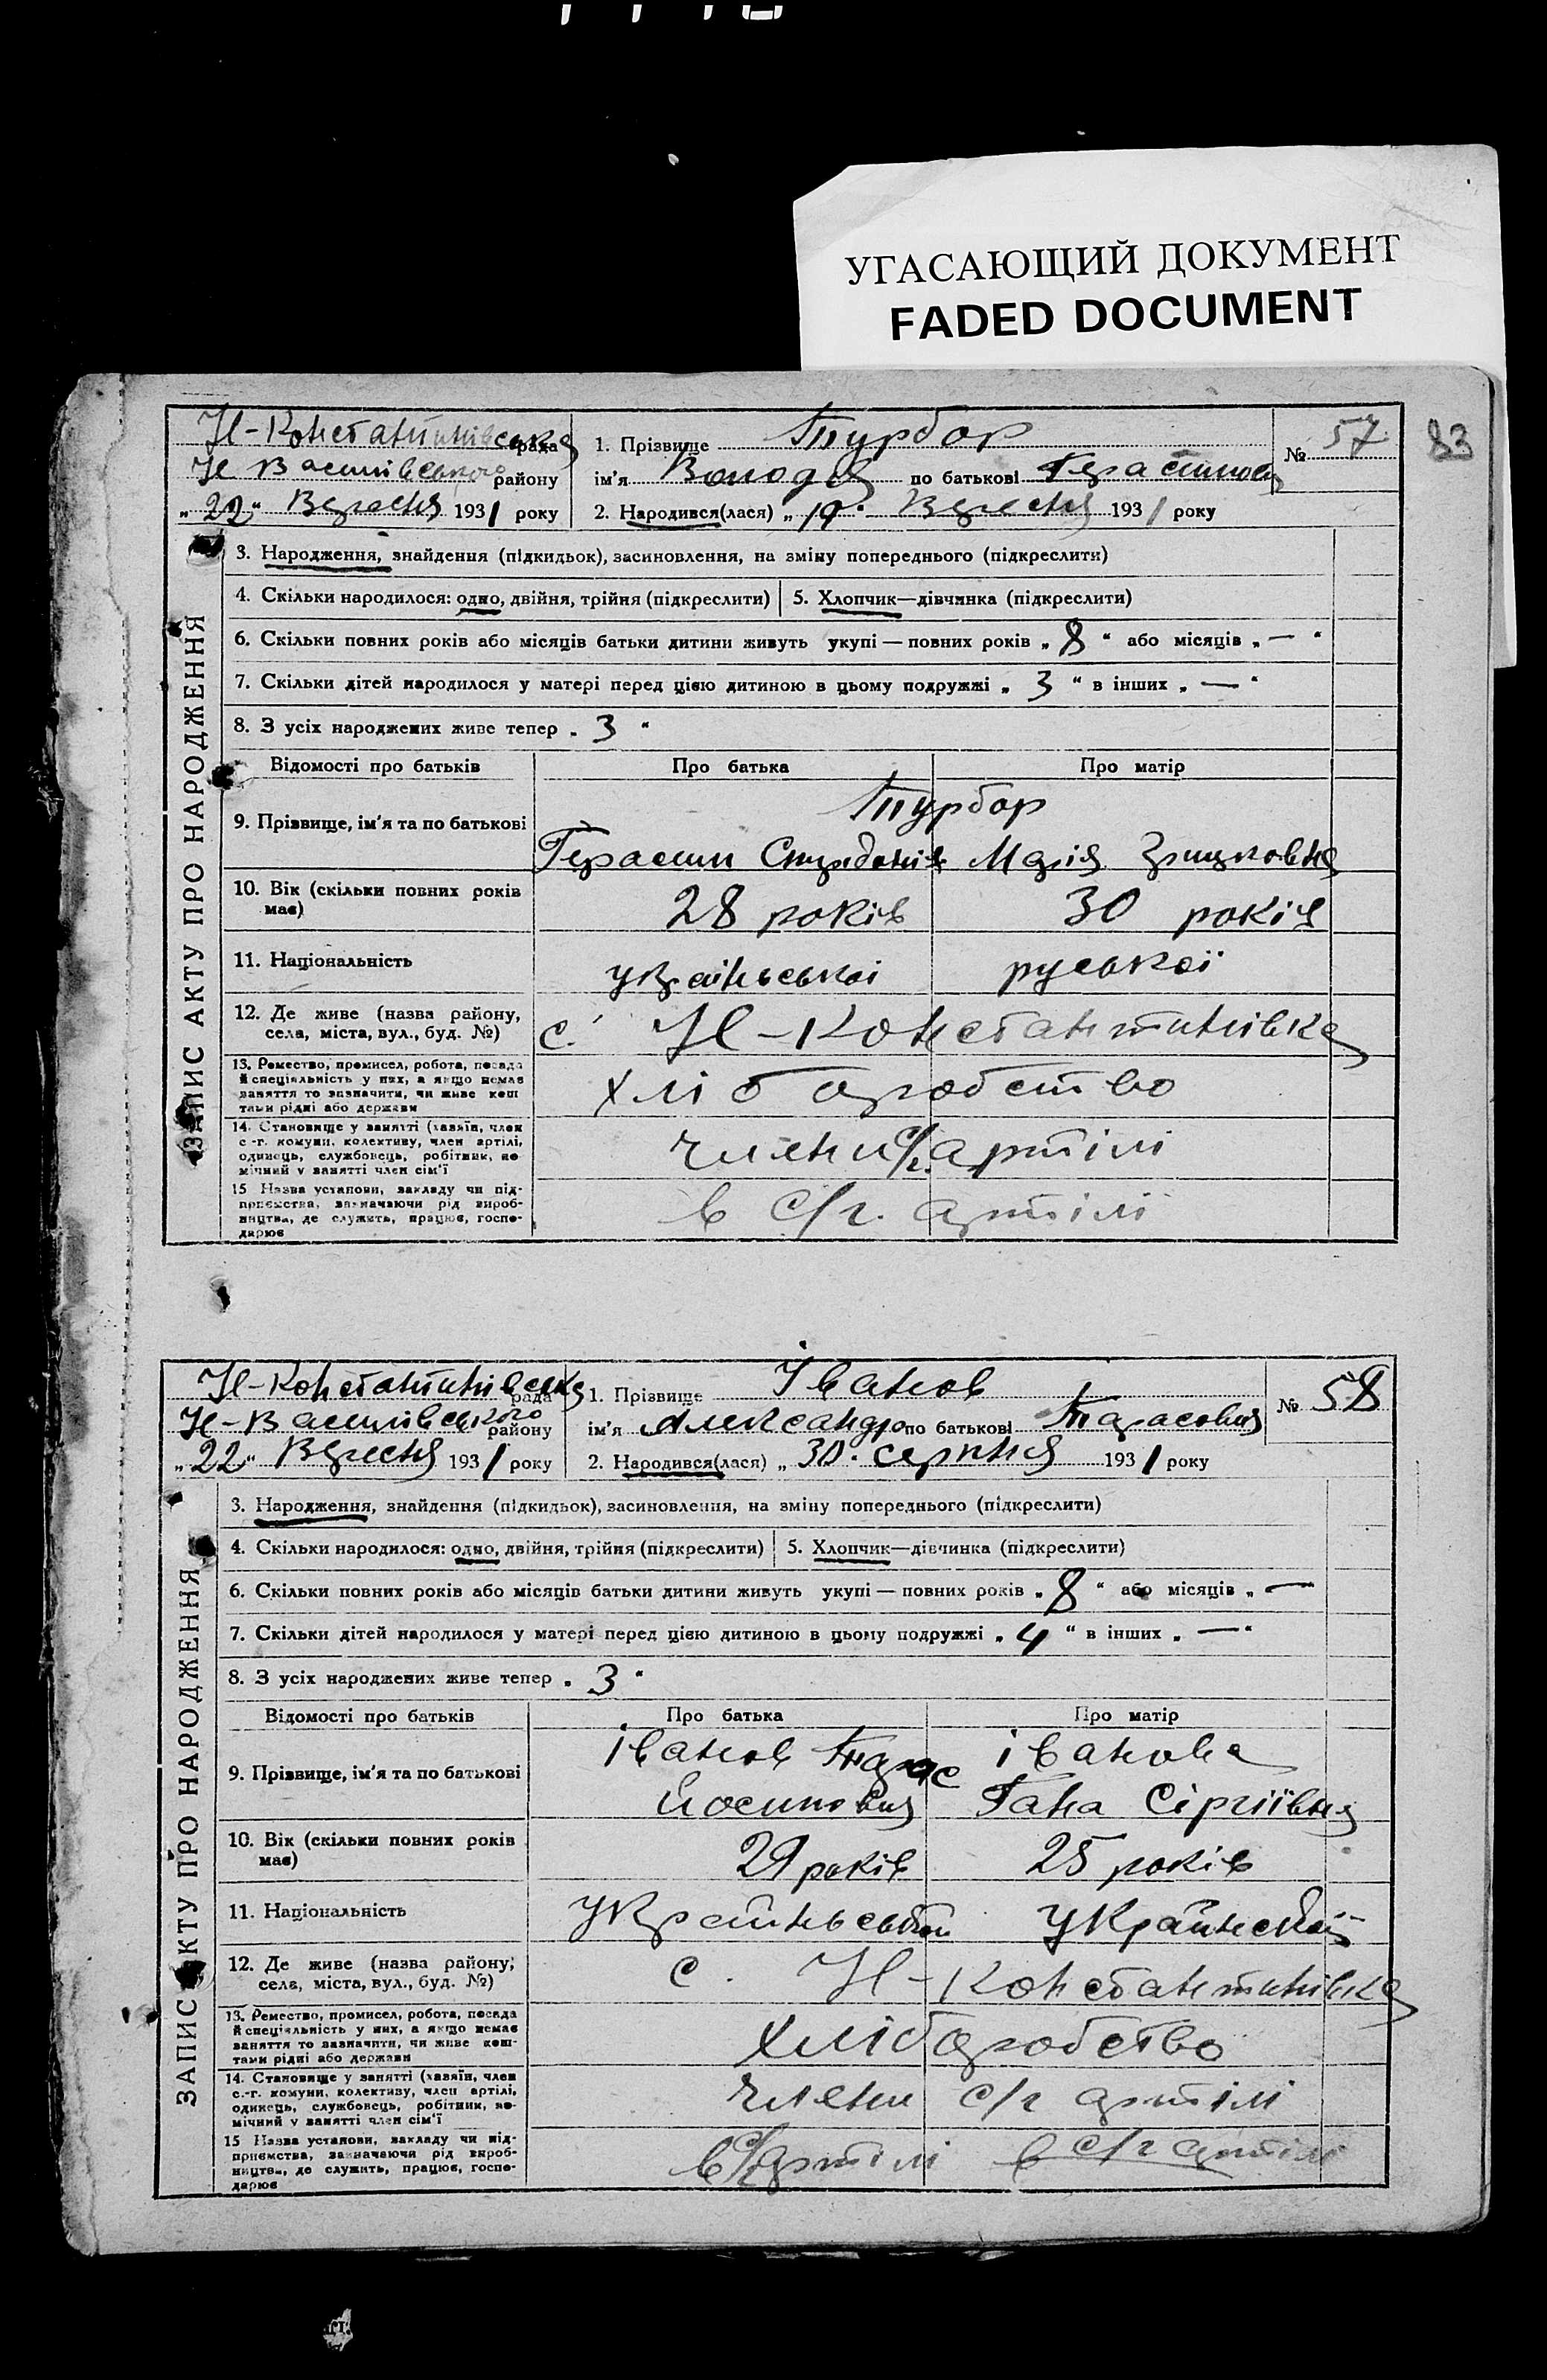 УГАСАЮЩИЙ ДОКУМЕНТ
FADED DOCUMENT
83
Н-Константинівська рада
Н Василівського району
„22“ Вересня 1931 року
1. Прізвище Турбор
ім'я Володя по батькові Герасимов
2. Народився(лася) „19“ Вересня 1931 року
№ 57
ЗАПИС АКТУ ПРО НАРОДЖЕННЯ
3. Народження, знайдення (підкидьок), засиновлення, на зміну попереднього (підкреслити)
4. Скільки народилося: одно, двійня, трійня (підкреслити) 5. Хлопчик—дівчинка (підкреслити)
6. Скільки повних років або місяців батьки дитини живуть укупі — повних років „8“ або місяців „—“
7. Скільки дітей народилося у матері перед цією дитиною в цьому подружжі „3“ в інших „—“
8. З усіх народжених живе тепер „3“
Відомості про батьків Про батька Про матір
9. Прізвище, ім'я та по батькові
Турбор
Герасим Спиридоній Марія Грицковна
10. Вік (скільки повних років має) 28 років 30 років
11. Національність україньської руської
12. Де живе (назва району, села, міста, вул., буд. №) с. Н-Константинівка
13. Ремество, промисел, робота, посада
й спеціяльність у них, а якщо немає
заняття то зазначити, чи живе кош
тами рідні або держави
хліборобство
14. Становище у занятті (хазяїн, член
с.-г. комуни, колективу, член артілі,
одинець, службовець, робітник, по-
мічний у занятті член сім'ї
члени с/г. артілі
15 Назва установи, закладу чи під-
приємства, зазначаючи рід вироб-
ництва, де служить, працює, госпо-
дарює
в с/г. артілі
Н-Константинівська рада
Н-Василівського району
„22“ Вересня 1931 року
1. Прізвище Іванов
ім'я Александр по батькові Тарасович
2. Народився(лася) „30“ серпня 1931 року
№ 58
ЗАПИС АКТУ ПРО НАРОДЖЕННЯ
3. Народження, знайдення (підкидьок), засиновлення, на зміну попереднього (підкреслити)
4. Скільки народилося: одно, двійня, трійня (підкреслити) 5. Хлопчик—дівчинка (підкреслити)
6. Скільки повних років або місяців батьки дитини живуть укупі — повних років „8“ або місяців „—
7. Скільки дітей народилося у матері перед цією дитиною в цьому подружжі „4“ в інших „—“
8. З усіх народжених живе тепер „3“
Відомості про батьків Про батька Про матір
9. Прізвище, ім'я та по батькові
іванов Тарас іванова
Йосипович Гана Сіргіївна
10. Вік (скільки повних років має) 29 років 25 років
11. Національність Україньської Української
12. Де живе (назва району, села, міста, вул., буд. №) с. Н-Константинівка
13. Ремество, промисел, робота, посада
й спеціяльність у них, а якщо немає
заняття то зазначити, чи живе кош-
тами рідні або держави
хліборобство
14. Становище у занятті (хазяїн, член
с.-г. комуни, колективу, член артілі,
одинець, службовець, робітник, по-
мічний у занятті член сім'ї
члени с/г артілі
15 Назва установи, закладу чи під-
приємства, зазначаючи рід вироб-
ництва, де служить, працює, госпо-
дарює
в с/г артілі в с/г артілі